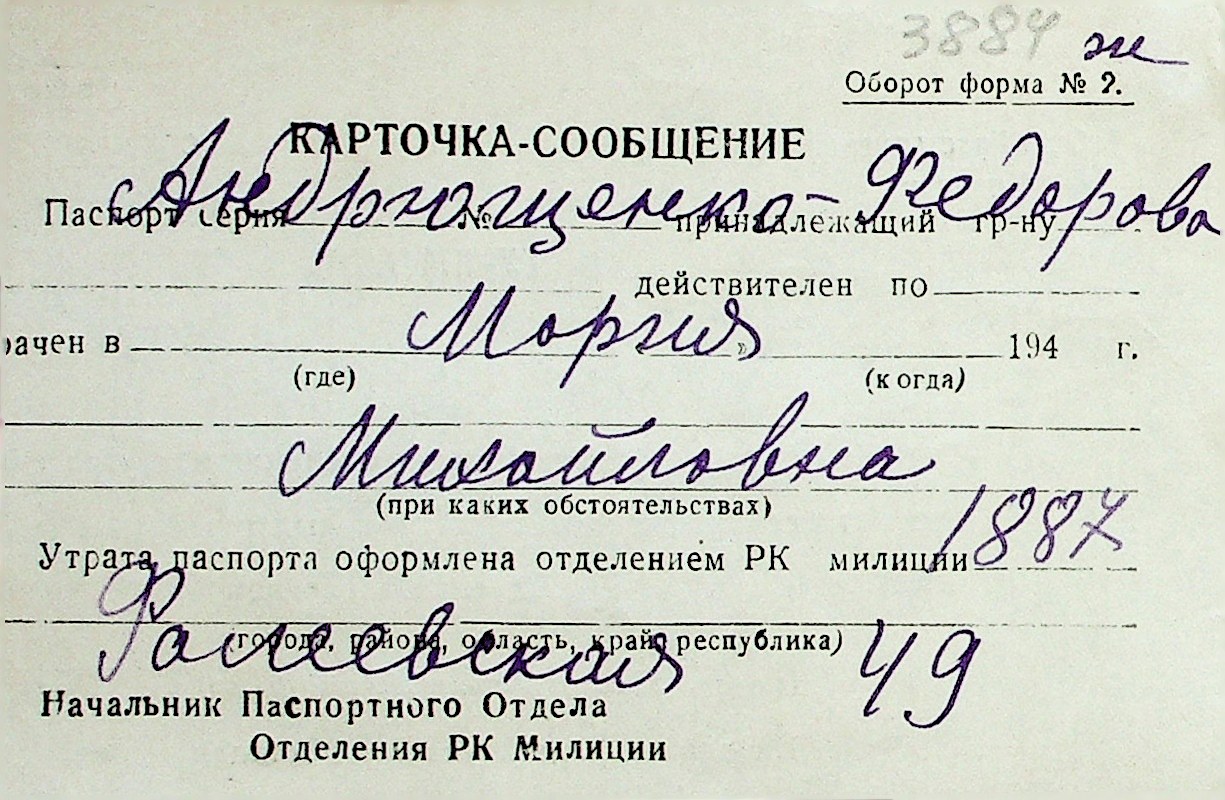 3884 ж
Оборот форма № 2.
КАРТОЧКА-СООБЩЕНИЕ
Андрющенко-Федорова
Паспорт серия № принадлежащий гр-ну
действителен по
Мария
рачен в » 194 г.
(где) (когда)
Михайловна
(при каких обстоятельствах)
1887
Утрата паспорта оформлена отделением РК милиции
(города, района, область, край, республика)
49
Начальник Паспортного Отдела
Отделения РК Милиции